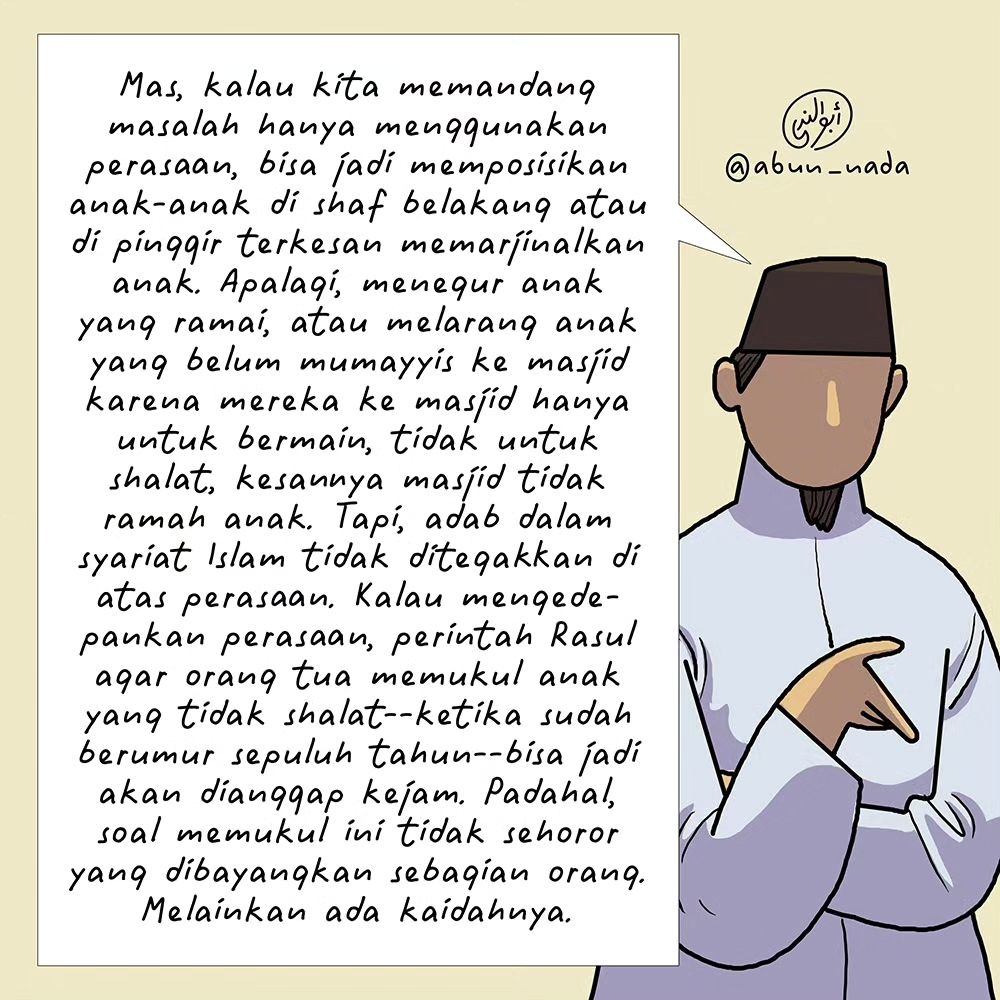 Mas, kalau kita memandang
masalah hanya menggunakan
perasaan, bisa jadi memposisikan
anak-anak di shaf belakang atau
di pinggir terkesan memarjinalkan
anak. Apalagi, menegur anak
yang ramai, atau melarang anak
yang belum mumayyis ke masjid
karena mereka ke masjid hanya
untuk bermain, tidak untuk
shalat, kesannya masjid tidak
ramah anak. Tapi, adab dalam
syariat Islam tidak ditegakkan di
atas perasaan. Kalau mengede-
pankan perasaan, perintah Rasul
agar orang tua memukul anak
yang tidak shalat--ketika sudah
berumur sepuluh tahun--bisa jadi
akan dianggap kejam. Padahal,
soal memukul ini tidak sehoror
yang dibayangkan sebagian orang.
Melainkan ada kaidahnya.
@abun_nada